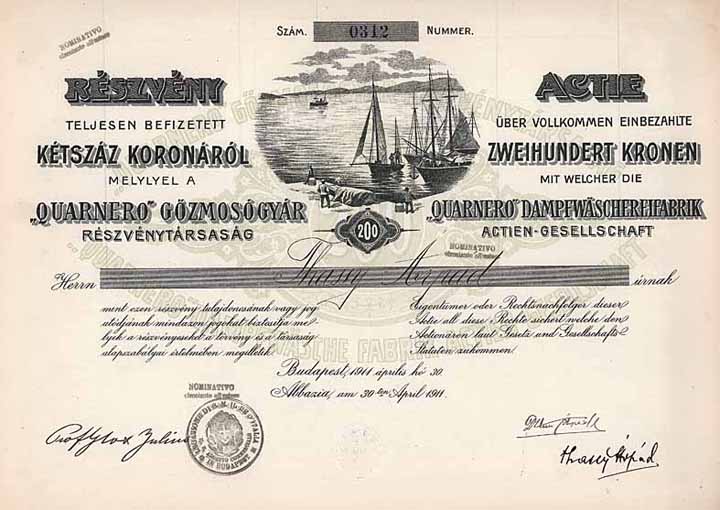 SZÁM. 0312 NUMMER.
NOMINATIVO
RÉSZVÉNY
TELJESEN BEFIZETETT
KÉTSZÁZ KORONÁRÓL
MELYLYEL A
„QUARNERO” GŐZMOSÓGYÁR
RÉSZVÉNYTÁRSASÁG
ACTIE
ÜBER VOLLKOMMEN EINBEZAHLTE
ZWEIHUNDERT KRONEN
MIT WELCHER DIE
„QUARNERO” DAMPFWÄSCHEREIFABRIK
ACTIEN-GESELLSCHAFT
200
NOMINATIVO
Herrn Thassy Árpád úrnak
mint ezen részvény tulajdonosának vagy jog
utódjának mindazon jogokat biztosítja me-
lyek a részvényeseket a törvény és a társaság
alapszabályai értelmében megilletik.
Eigentümer oder Rechtsnachfolger dieser
Actie all diese Rechte sichert welche den
Aktionären laut Gesetz und Gesellschafts
Statuten zukommen.
Budapest, 1911 április hó 30.
Abbazia, am 30ten April 1911.
NOMINATIVO
IN BUDAPEST
Julius
Thassy Árpád